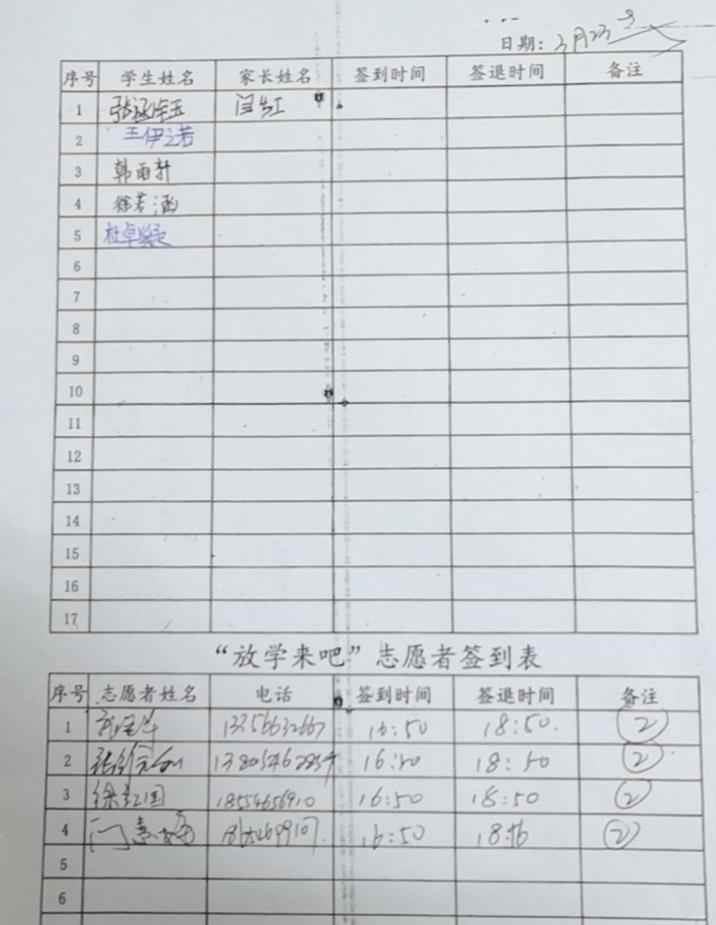 日期：3月23号
序号 学生姓名 家长姓名 签到时间 签退时间 备注
1
2 王伊之若
3 韩雨轩
4 徐若涵
5
6
7
8
9
10
11
12
13
14
15
16
17
“放学来吧”志愿者签到表
序号 志愿者姓名 电话 签到时间 签退时间 备注
1 13256632667 16:50 18:50. ②
2 16:50 18:50 ②
3 徐红国 18554656910 16:50 18:50 ②
4 16:50 ②
5
6